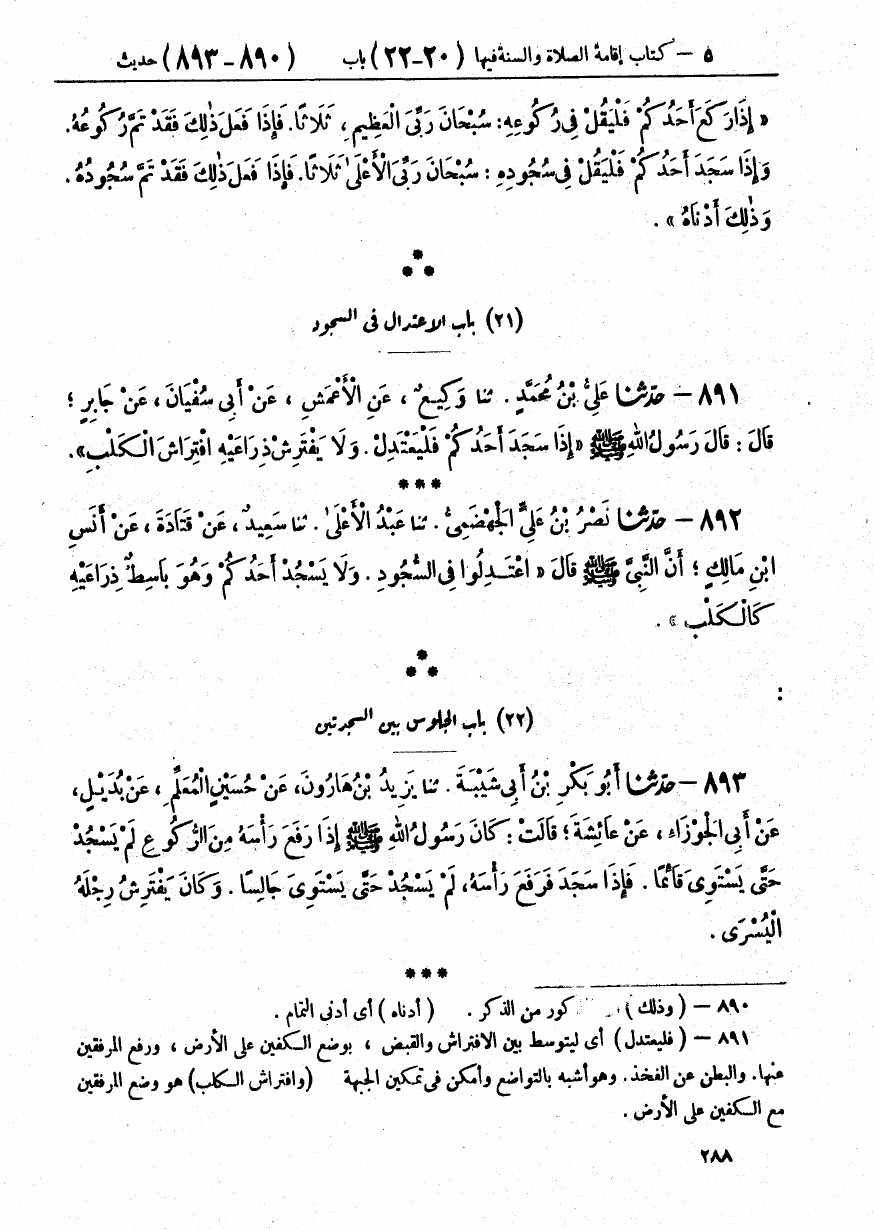 ٥ – كتاب إقامة الصلاة والسنة فيها (٢٠-٢٢) باب (٨٩٠-٨٩٣) حديث
« إِذَا رَكَعَ أَحَدُكُمْ فَلْيَقُلْ فِى رُكُوعِهِ: سُبْحَانَ رَبِّىَ الْعَظِيمِ، ثَلَاثًا. فَإِذَا فَعَلَ ذٰلِكَ فَقَدْ تَمَّ رُكُوعُهُ.
وَإِذَا سَجَدَ أَحَدُكُمْ فَلْيَقُلْ فِى سُجُودِهِ : سُبْحَانَ رَبِّىَ الْأَعْلَىٰ ثَلَاثًا. فَإِذَا فَعَلَ ذٰلِكَ فَقَدْ تَمَّ سُجُودُهُ .
وَذٰلِكَ أَدْنَاهُ » .
***
(٢١) باب الاعتدال فى السجود
٨٩١ – حدّثنا عَلِىُّ بْنُ مُحَمَّدٍ . ثنا وَكِيعٌ ، عَنِ الْأَعْمَشِ ، عَنْ أَبِى سُفْيَانَ ، عَنْ جَابِرٍ ؛
قَالَ : قَالَ رَسُولُ اللهِ ﷺ « إِذَا سَجَدَ أَحَدُكُمْ فَلْيَعْتَدِلْ . وَلَا يَفْتَرِشْ ذِرَاعَيْهِ افْتِرَاشَ الْكَلْبِ».
***
٨٩٢ – حدّثنا نَصْرُ بْنُ عَلِىٍّ الْجَهْضَمِىُّ . ثنا عَبْدُ الْأَعْلَىٰ . ثنا سَعِيدٌ ، عَنْ قَتَادَةَ ، عَنْ أَنَسِ
ابْنِ مَالِكٍ ؛ أَنَّ النَّبِىَّ ﷺ قَالَ « اعْتَدِلُوا فِى السُّجُودِ . وَلَا يَسْجُدْ أَحَدُكُمْ وَهُوَ بَاسِطٌ ذِرَاعَيْهِ
كَالْكَلْبِ » .
***
(٢٢) باب الجلوس بين السجدتين
٨٩٣ – حدّثنا أَبُو بَكْرِ بْنُ أَبِى شَيْبَةَ . ثنا يَزِيدُ بْنُ هَارُونَ، عَنْ حُسَيْنٍ الْمُعَلِّمِ ، عَنْ بُدَيْلٍ،
عَنْ أَبِى الْجَوْزَاءِ ، عَنْ عَائِشَةَ ؛ قَالَتْ : كَانَ رَسُولُ اللهِ ﷺ إِذَا رَفَعَ رَأْسَهُ مِنَ الرُّكُوعِ لَمْ يَسْجُدْ
حَتَّى يَسْتَوِىَ قَائِمًا . فَإِذَا سَجَدَ فَرَفَعَ رَأْسَهُ، لَمْ يَسْجُدْ حَتَّى يَسْتَوِىَ جَالِسًا . وَكَانَ يَفْتَرِشُ رِجْلَهُ
الْيُسْرَى .
***
٨٩٠ – (وذلك) كور من الذكر . (أدناه) أى أدنى التمام .
٨٩١ – (فليعتدل) أى ليتوسط بين الافتراش والقبض ، بوضع الكفين على الأرض ، ورفع المرفقين
عنها. والبطن عن الفخذ. وهو أشبه بالتواضع وأمكن فى تمكين الجبهة (وافتراش الكلب) هو وضع المرفقين
مع الكفين على الأرض .
٢٨٨